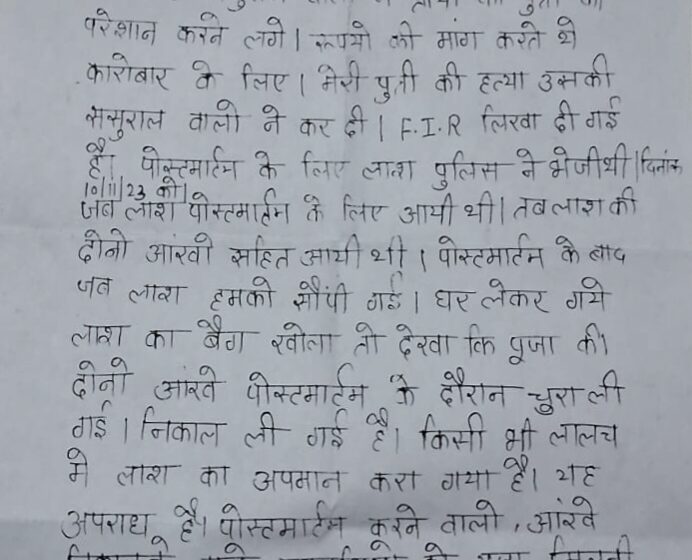 परेशान करने लगे। रूपयो की मांग करते थे
कारोबार के लिए। मेरी पुत्री की हत्या उसकी
ससुराल वालो ने कर दी। F.I.R लिखा दी गई
है। पोस्टमार्टम के लिए लाश पुलिस ने भेजीथी।दिनांक
10/11/23 को।
जब लाश पोस्टमार्टम के लिए आयी थी। तब लाश की
दोनो आंखो सहित आयी थी। पोस्टमार्टम के बाद
जब लाश हमको सौंपी गई। घर लेकर गये
लाश का बैग खोला तो देखा कि पूजा की
दोनो आंखे पोस्टमार्टम के दौरान चुरा ली
गई। निकाल ली गई है। किसी भी लालच
मे लाश का अपमान करा गया है। यह
अपराध है। पोस्टमार्टम करने वालो, आंखे